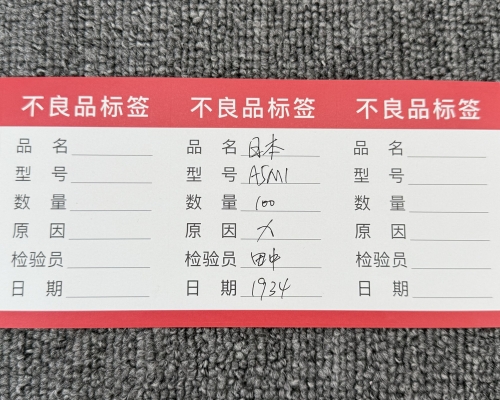 不良品标签
品 名
型 号
数 量
原 因
检验员
日 期
不良品标签
品 名 日本
型 号 ASM1
数 量 100
原 因 大
检验员 田中
日 期 1934
不良品标签
品 名
型 号
数 量
原 因
检验员
日 期